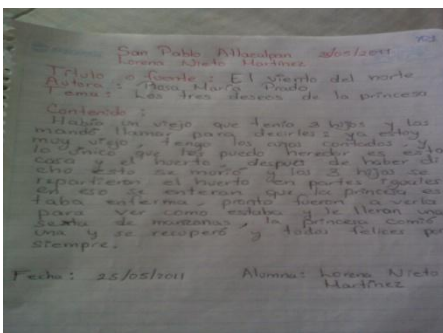 San Pablo Atlazalpan 25/05/2011
Lorena Nieto Martínez
Título o fuente: El viento del norte
Autora: Rosa María Prado
Tema: Los tres deseos de la princesa
Contenido:
Había un viejo que tenía 3 hijos y los
mandó llamar para decirles: ya estoy
muy viejo, tengo los años contados, y
lo único que les puedo heredar es esta
casa y el huerto, después de haber di
cho esto se murió y los 3 hijos se
repartieron el huerto en partes iguales
en eso se enteran que la princesa es
taba enferma, pronto fueron a verla
para ver como estaba y le llevan una
sexta de manzanas, la princesa comió
una y se recuperó y todos felices por
siempre.
Fecha: 25/05/2011 Alumna: Lorena Nieto
Martínez